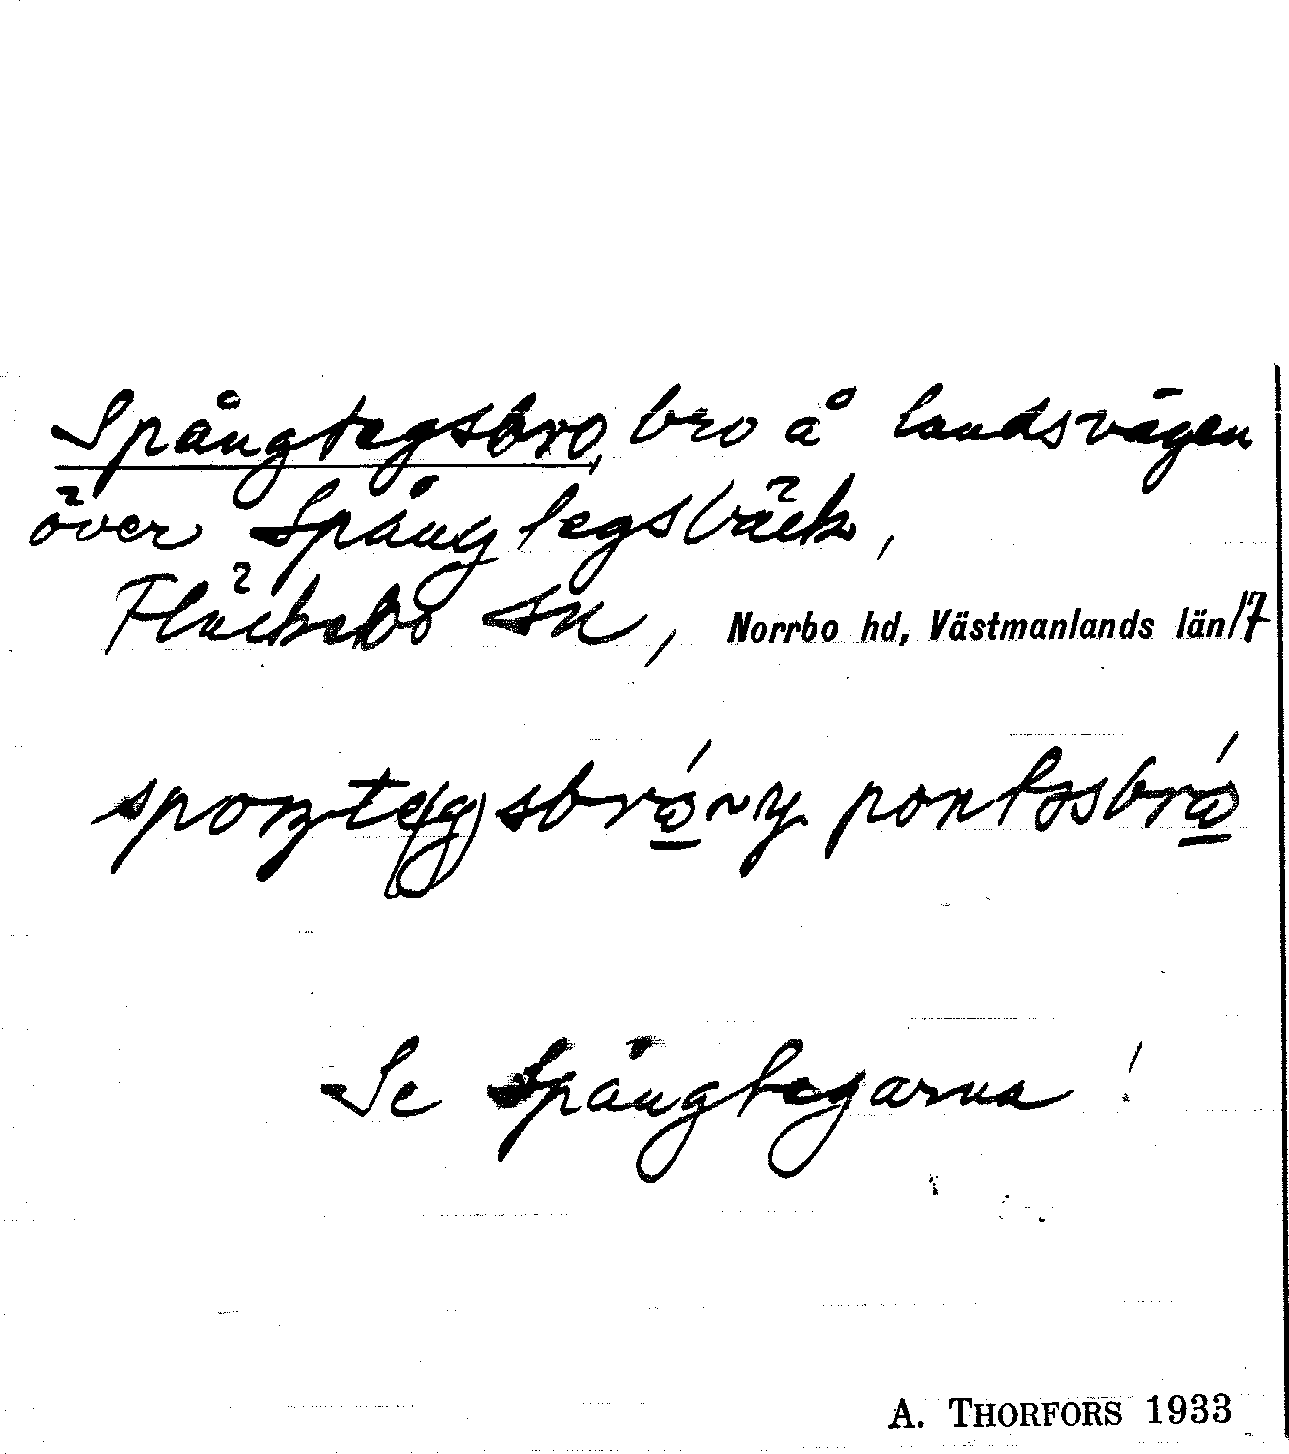 Spångtegsbro, bro å landsvägen
över Spångtegsbäck,
Fläckebo sn, Norrbo hd, Västmanlands län/7
Se Spångtegarna!
A. THORFORS 1933